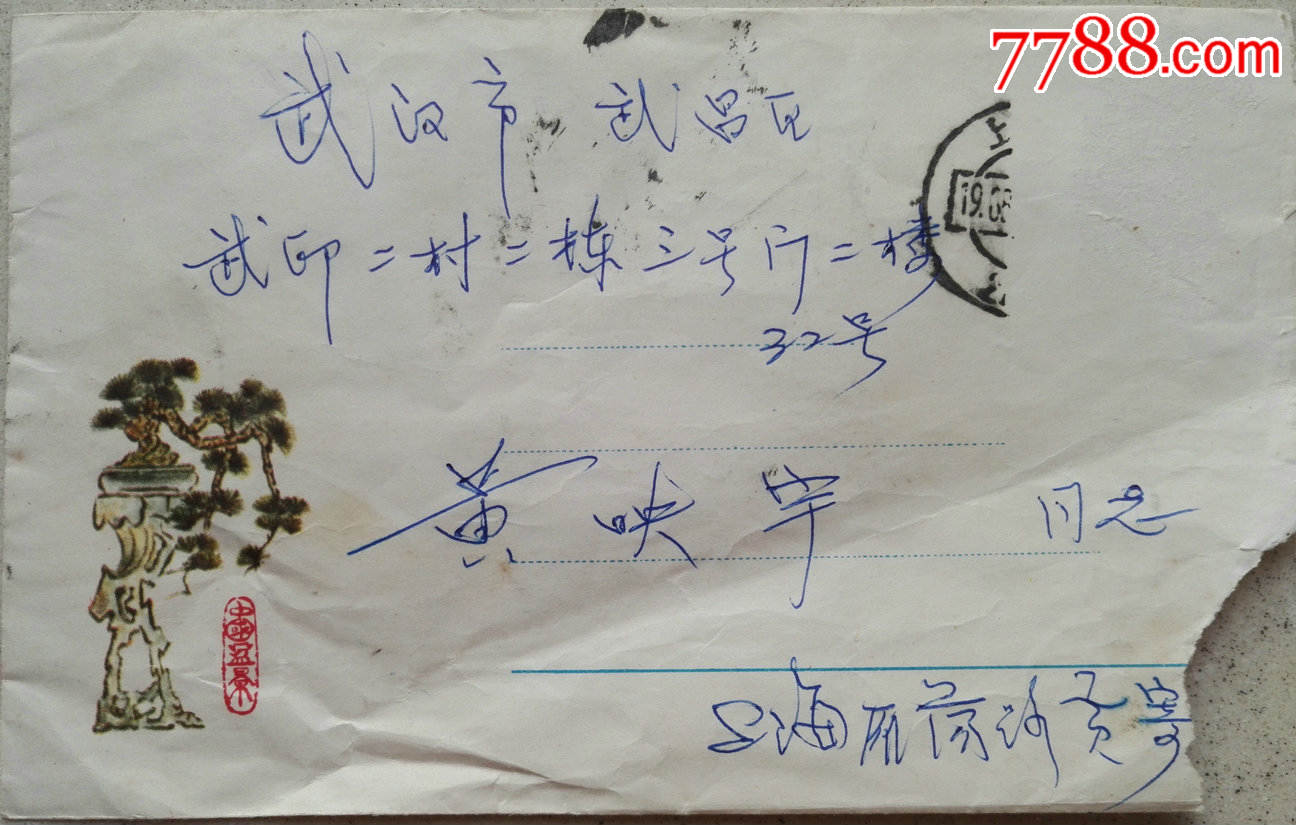 7788.com
武汉市 武昌区
上
19.08
武印二村二栋三号门二楼
32号
黄映宇 同志
中国盆景
上海 寄